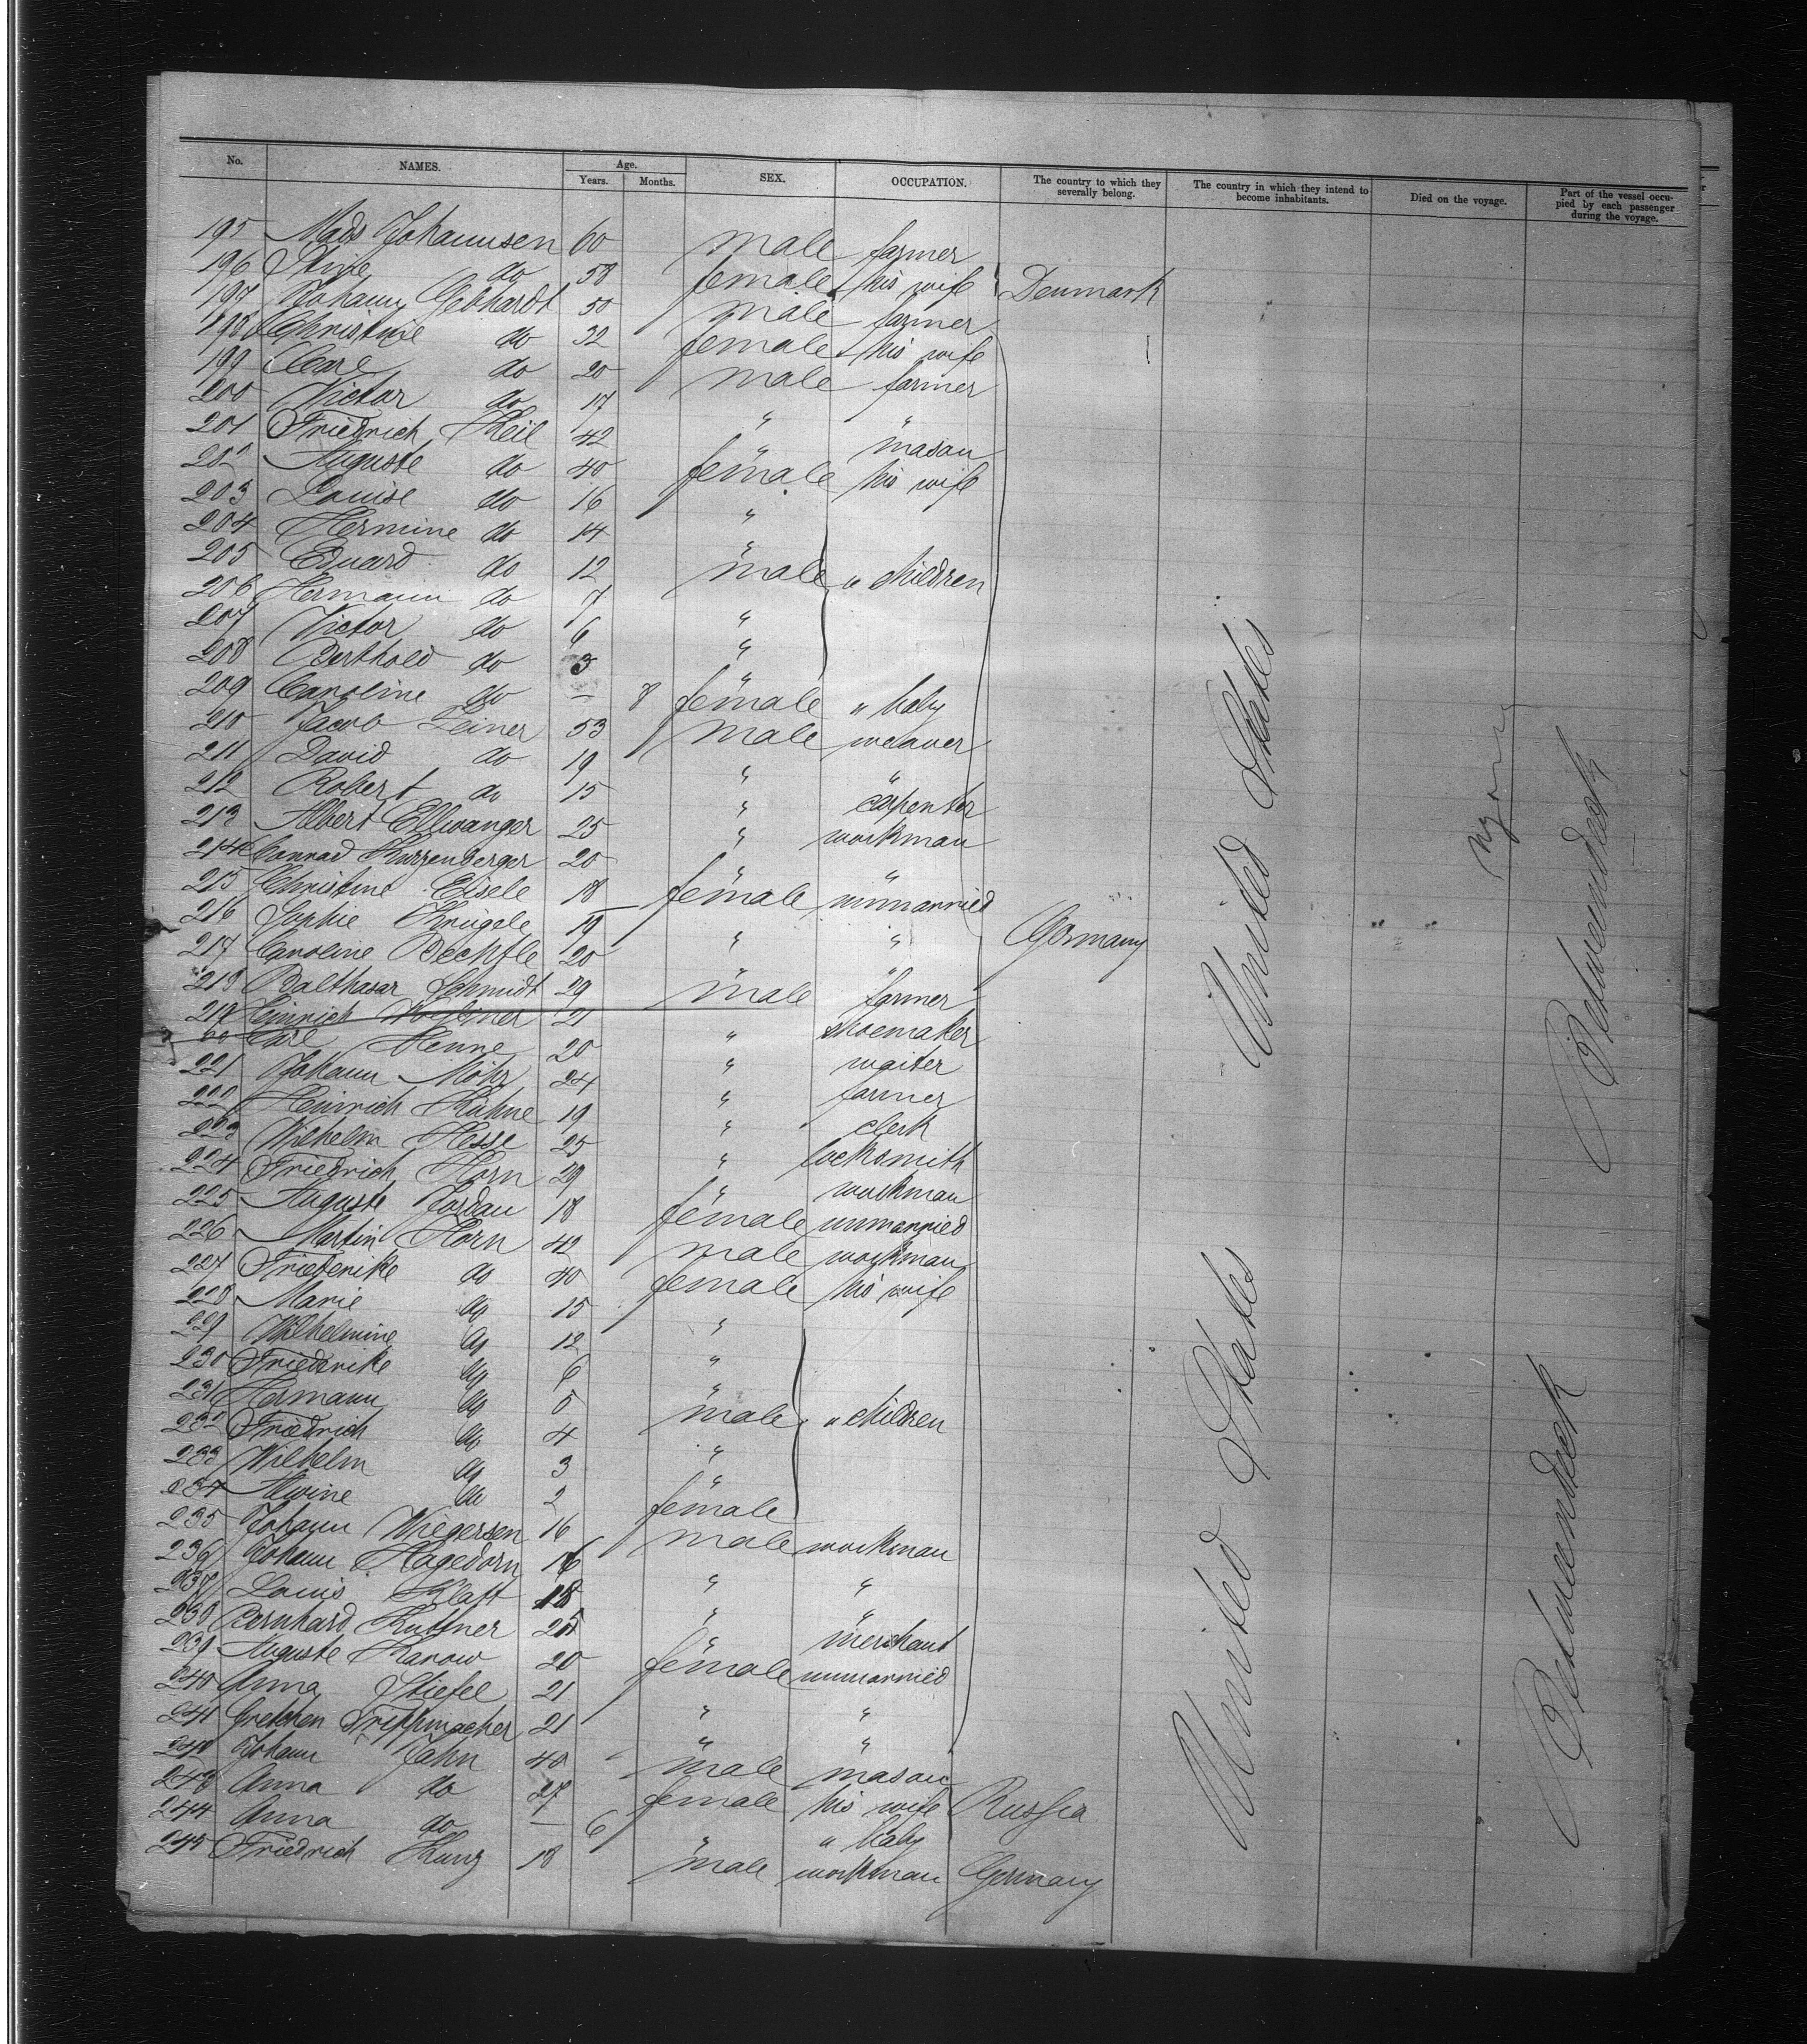 No. NAMES. Age. Years. Months. SEX. OCCUPATION. The country to which they severally belong. The country in which they intend to become inhabitants. Died on the voyage. Part of the vessel occupied by each passenger during the voyage.
195 Mads Johannsen 60 male farmer
196 Stine do 58 female his wife Denmark
197 Johann Gebhardt 50 male farmer
198 Christine do 32 female his wife
199 Carl do 20 male farmer
200 Victor do 17 " "
201 Friedrich Keil 42 " mason
202 Auguste do 40 female his wife
203 Louise do 16 "
204 Hermine do 14 "
205 Eduard do 12 male " children
206 Hermann do 7 "
207 Victor do 6 "
208 Berthold do 3 "
209 Caroline do — 8 female " baby
210 Jacob Leiner 53 male weaver
211 David do 19 " "
212 Robert do 15 " carpenter
213 Albert Ellwanger 25 " workman
214 Conrad Kurzenberger 20 " "
215 Christine Eisele 18 female unmarried
216 Sophie Krügele 19 " " Germany
217 Caroline Bechtle 20 " "
218 Balthasar Schmidt 29 male farmer
219 Heinrich 21 " shoemaker
Carl Henne 20 " waiter
221 Johann Mohr 24 " farmer
222 Heinrich Kühne 19 " clerk
223 Wilhelm Hesse 25 " locksmith
224 Friedrich Horn 29 " workman
225 Auguste Jordan 18 female unmarried
226 Martin Horn 42 male workman
227 Friederike do 40 female his wife
228 Marie do 15 "
229 Wilhelmine do 12 "
230 Friederike do 6 "
231 Hermann do 5 male " children
232 Friedrich do 4 "
233 Wilhelm do 3 "
234 Alwine do 2 female
235 Johann Wiegersen 16 male workman
236 Johann Hagedorn 16 " "
237 Louis Klatt 18 " "
238 Bernhard Kuttner 25 " merchant
239 Auguste Karow 20 female unmarried
240 Anna Stiefel 21 " "
241 Gretchen Trippmacher 21 " "
242 Johann Jahn 40 male mason
243 Anna do 27 female his wife Russia
244 Anna do — 6 " " baby
245 Friedrich Kunz 18 male workman Germany
United States
United States
Betweendeck
Betweendeck